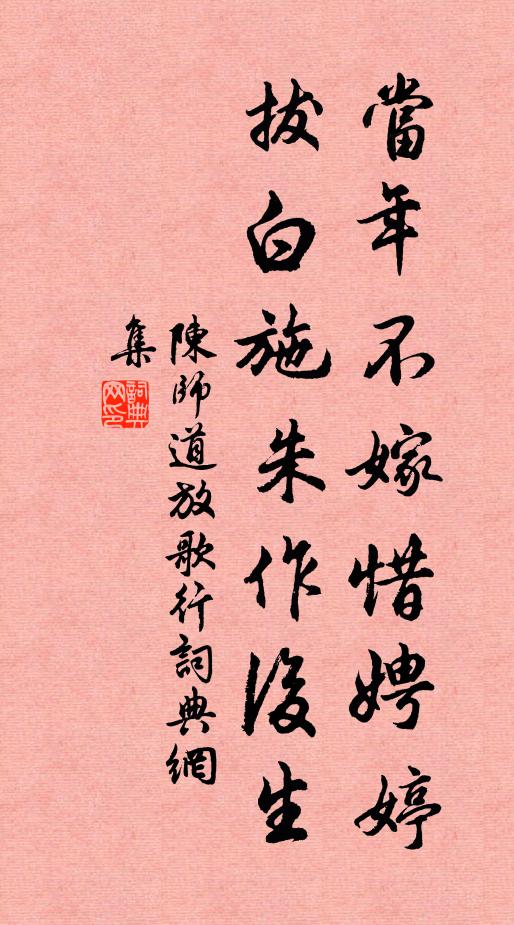 當年不嫁惜娉婷
拔白施朱作後生
陳師道放歌行詞典網
集
詞典
网印